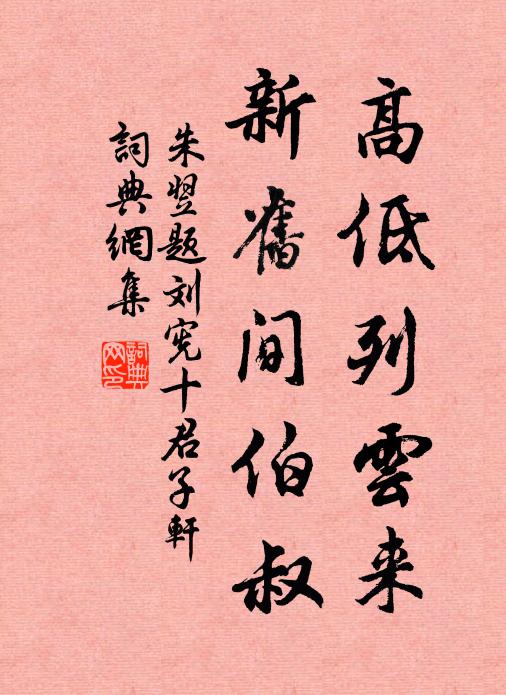 高低列雲来
新舊间伯叔
朱翌题刘宪十君子軒
詞典網集
詞典
网印